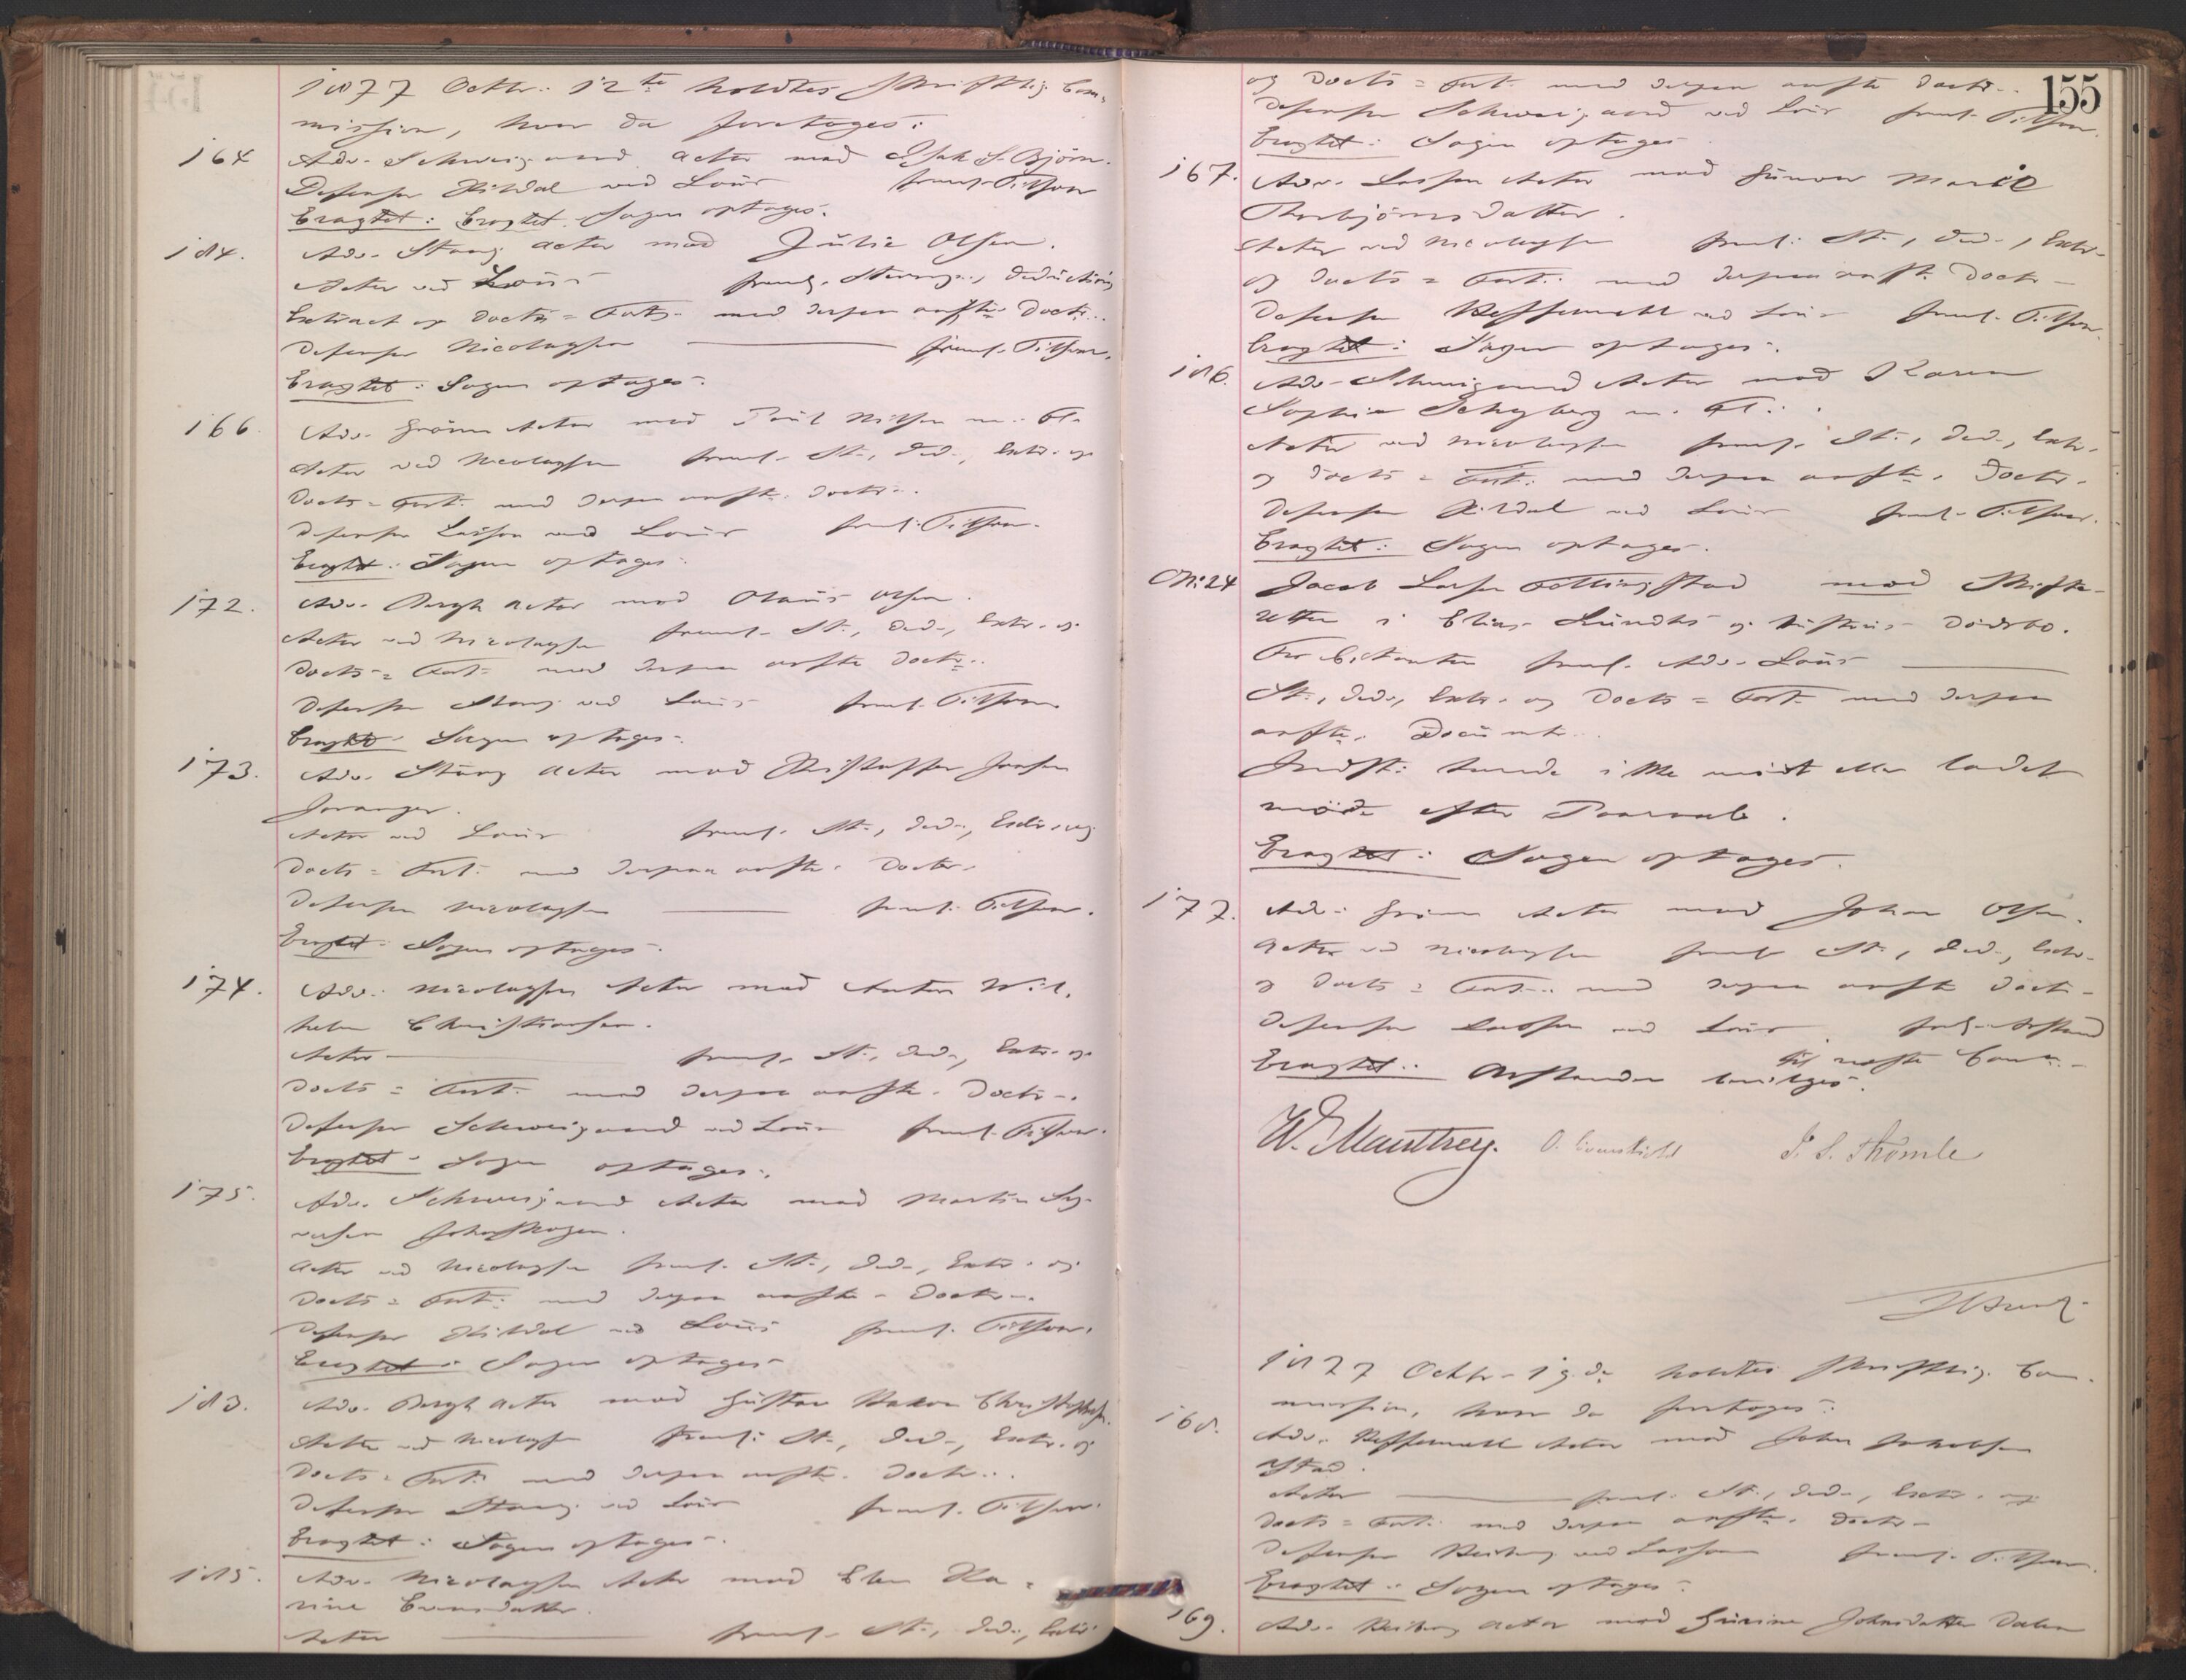 1877 Octbr. 12te holdtes skriftlig Com-
mission, hvor da foretoges:
164 Adv. Schweigaard Actor mod Isak S. Björn.
Defensor Hildal ved Lous freml. Tilsvar
Eragtet: Eragtet. Sagen optages.
184. Adv. Stang Actor mod Julie Olsen.
Actor ved Lous freml. Stevning, Deductions
Extract og Docts = Fort. med derpaa anförte Doctr.
Defensor Nicolaysen freml. Tilsvar.
Eragtet: Sagen optages.
166. Adv. Grönn Actor mod Poul Nilsen m. Fl.
Actor ved Nicolaysen freml. St., Ded., Extr. og
Docts = Fort. med derpaa anförte Doctr.
Defensor Lasson ved Lous freml. Tilsvar.
Eragtet: Sagen optages.
172. Adv. Bergh Actor mod Olaus Olsen.
Actor ved Nicolaysen freml. St., Ded., Extr. og
Docts = Fort. med derpaa anförte Doctr.
Defensor Stang ved Lous freml. Tilsvar.
Eragtet: Sagen optages.
173. Adv. Stang Actor mod Kristoffer Jonsen
Joranger.
Actor ved Lous freml. St., Ded., Extr. og
Docts = Fort. med derpaa anförte Doctr.
Defensor Nicolaysen freml. Tilsvar.
Eragtet: Sagen optages.
174. Adv. Nicolaysen Actor mod Anton Wil-
helm Christiansen.
Actor freml. St., Ded., Extr. og
Docts = Fort. med derpaa anförte Doctr.
Defensor Schweigaard ved Lous freml. Tilsvar.
Eragtet: Sagen optages.
175. Adv. Schweigaard Actor mod Martin Sy-
versen
Actor ved Nicolaysen freml. St., Ded., Extr. og
Docts = Fort. med derpaa anförte Doctr.
Defensor Hildal ved Lous freml. Tilsvar.
Eragtet: Sagen optages.
183. Adv. Bergh Actor mod Gustav Hakon Christophersen.
Actor ved Nicolaysen freml. St., Ded., Extr. og
Docts = Fort. med derpaa anförte Doctr.
Defensor Stang ved Lous freml. Tilsvar.
Eragtet: Sagen optages.
185. Adv. Nicolaysen Actor mod Elen Ka-
rine Evensdatter.
Actor freml. St., Ded., Extr.
155
og Docts = Fort. med derpaa anförte Doctr.
Defensor Schweigaard ved Lous freml. Tilsvar.
Eragtet: Sagen optages
167. Adv. Lasson Actor mod Gunvor Marie
Thorbjörnsdatter.
Actor ved Nicolaysen freml. St., Ded., Extr.
og Docts = Fort. med derpaa anförte Doctr.
Defensor ved Lous freml. Tilsvar.
Eragtet: Sagen optages.
186. Adv. Schweigaard Actor mod Karen
Sophie Schyberg m. Fl.
Actor ved Nicolaysen freml. St., Ded., Extr.
og Docts = Fort. med derpaa anförte Doctr.
Defensor Hildal ved Lous freml. Tilsvar.
Eragtet: Sagen optages.
24 Jacob Larsen mod Skifte-
retten i Elias Lunds og Hustrus Dödsbo.
For Citanten freml. Adv. Lous
St., Ded., Extr. og Docts = Fort. med derpaa
anförte Docum.
Indst. havde ikke mödt eller ladet
möde efter Paaraab.
Eragtet: Sagen optages.
177. Adv. Grönn Actor mod Johan Olsen.
Actor ved Nicolaysen freml. St., Ded., Extr.
og Docts = Fort. med derpaa anförte Doctr.
Defensor Lasson ved Lous forl. Anstand
til næste Comm.
Eragtet: Anstanden bevilges.
J. S. Thomle
1877 Octbr. 19de holdtes skriftlig Com-
mission, hvor da foretoges:
168. Adv. Actor mod John Jakobsen
Stad.
Actor freml. St., Ded., Extr. og
Docts = Fort. med derpaa anförte Doctr.
Defensor ved Lasson freml. Tilsvar.
Eragtet: Sagen optages.
169. Adv. Actor mod Gurine Johnsdatter Dalen